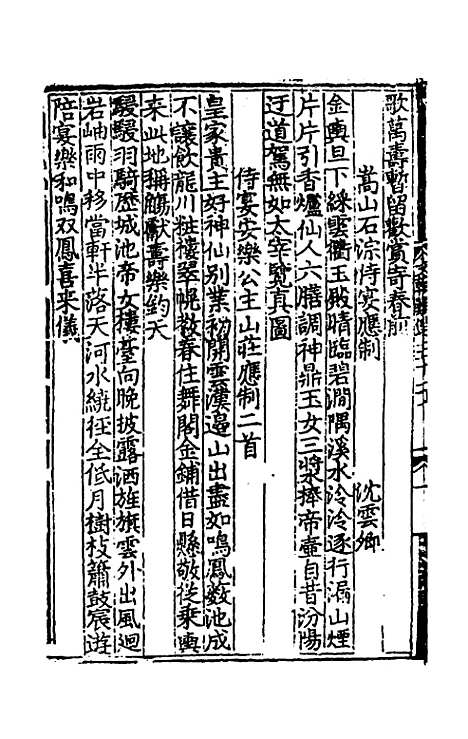 歌萬壽暫留歡賞寄春前
嵩山石淙侍宴應制　沈雲卿
金輿旦下綵雲衢玉殿晴臨碧澗隅溪水泠泠逐行漏山煙
片片引香爐仙人六膳調神鼎玉女三漿捧帝壷自昔汾陽
迂道駕無如太宰覽真圖
侍宴安樂公主山莊應制二首
皇家貴主好神仙别業初開雲漢邉山出盡如鳴鳳嶺池成
不讓飲龍川粧樓翠幌教春住舞閣金鋪借日懸敬従乗輿
来此地稱觴獻壽樂鈞天
騣騣羽騎歴城池帝女樓臺向晚披露洒旌旗雲外出風迴
岩岫雨中移當軒半落天河水繞徑全低月樹枝簫鼓宸遊
陪宴樂和鳴双鳳喜来儀